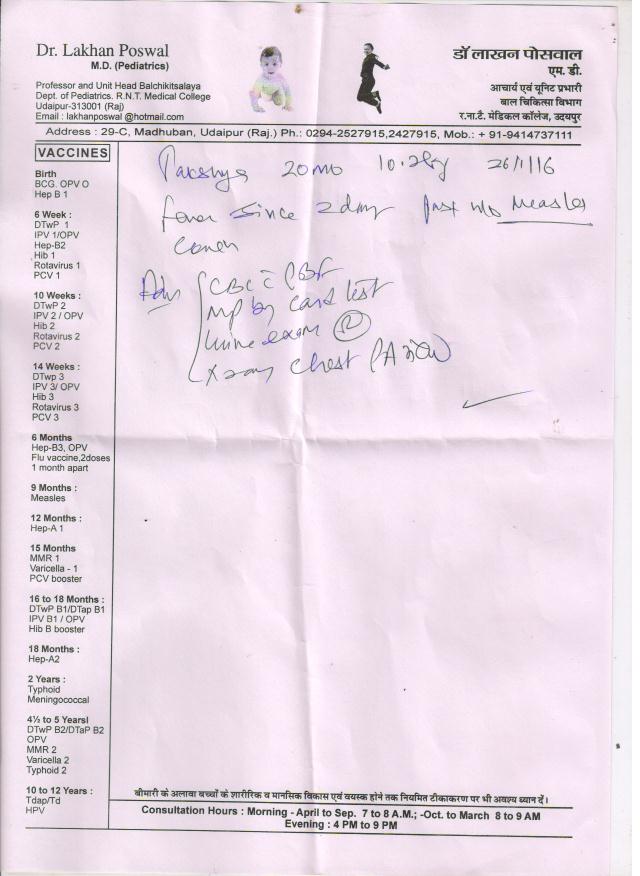 Dr. Lakhan Poswal
M.D. (Pediatrics)
Professor and Unit Head Balchikitsalaya
Dept. of Pediatrics. R.N.T. Medical College
Udaipur-313001 (Raj)
Email : lakhanposwal @hotmail.com
डॉ लाखन पोसवाल
एम. डी.
आचार्य एवं यूनिट प्रभारी
बाल चिकित्सा विभाग
र.ना.टै. मेडिकल कॉलेज, उदयपुर
Address : 29-C, Madhuban, Udaipur (Raj.) Ph.: 0294-2527915,2427915, Mob.: + 91-9414737111
VACCINES
Birth
BCG. OPV O
Hep B 1
6 Week :
DTwP 1
IPV 1/OPV
Hep-B2
Hib 1
Rotavirus 1
PCV 1
10 Weeks :
DTwP 2
IPV 2 / OPV
Hib 2
Rotavirus 2
PCV 2
14 Weeks :
DTwp 3
IPV 3/ OPV
Hib 3
Rotavirus 3
PCV 3
6 Months
Hep-B3, OPV
Flu vaccine,2doses
1 month apart
9 Months :
Measles
12 Months :
Hep-A 1
15 Months
MMR 1
Varicella - 1
PCV booster
16 to 18 Months :
DTwP B1/DTap B1
IPV B1 / OPV
Hib B booster
18 Months :
Hep-A2
2 Years :
Typhoid
Meningococcal
4½ to 5 Yearsl
DTwP B2/DTaP B2
OPV
MMR 2
Varicella 2
Typhoid 2
10 to 12 Years :
Tdap/Td
HPV
20 mo 10.2kg 26/1/16
fever since 2 days past h/o Measles
Adv CBC c PBF
MP by card test
Urine exam (R)
X ray chest (PA view)
बीमारी के अलावा बच्चों के शारीरिक व मानसिक विकास एवं वयस्क होने तक नियमित टीकाकरण पर भी अवश्य ध्यान दें।
Consultation Hours : Morning - April to Sep. 7 to 8 A.M.; -Oct. to March 8 to 9 AM
Evening : 4 PM to 9 PM